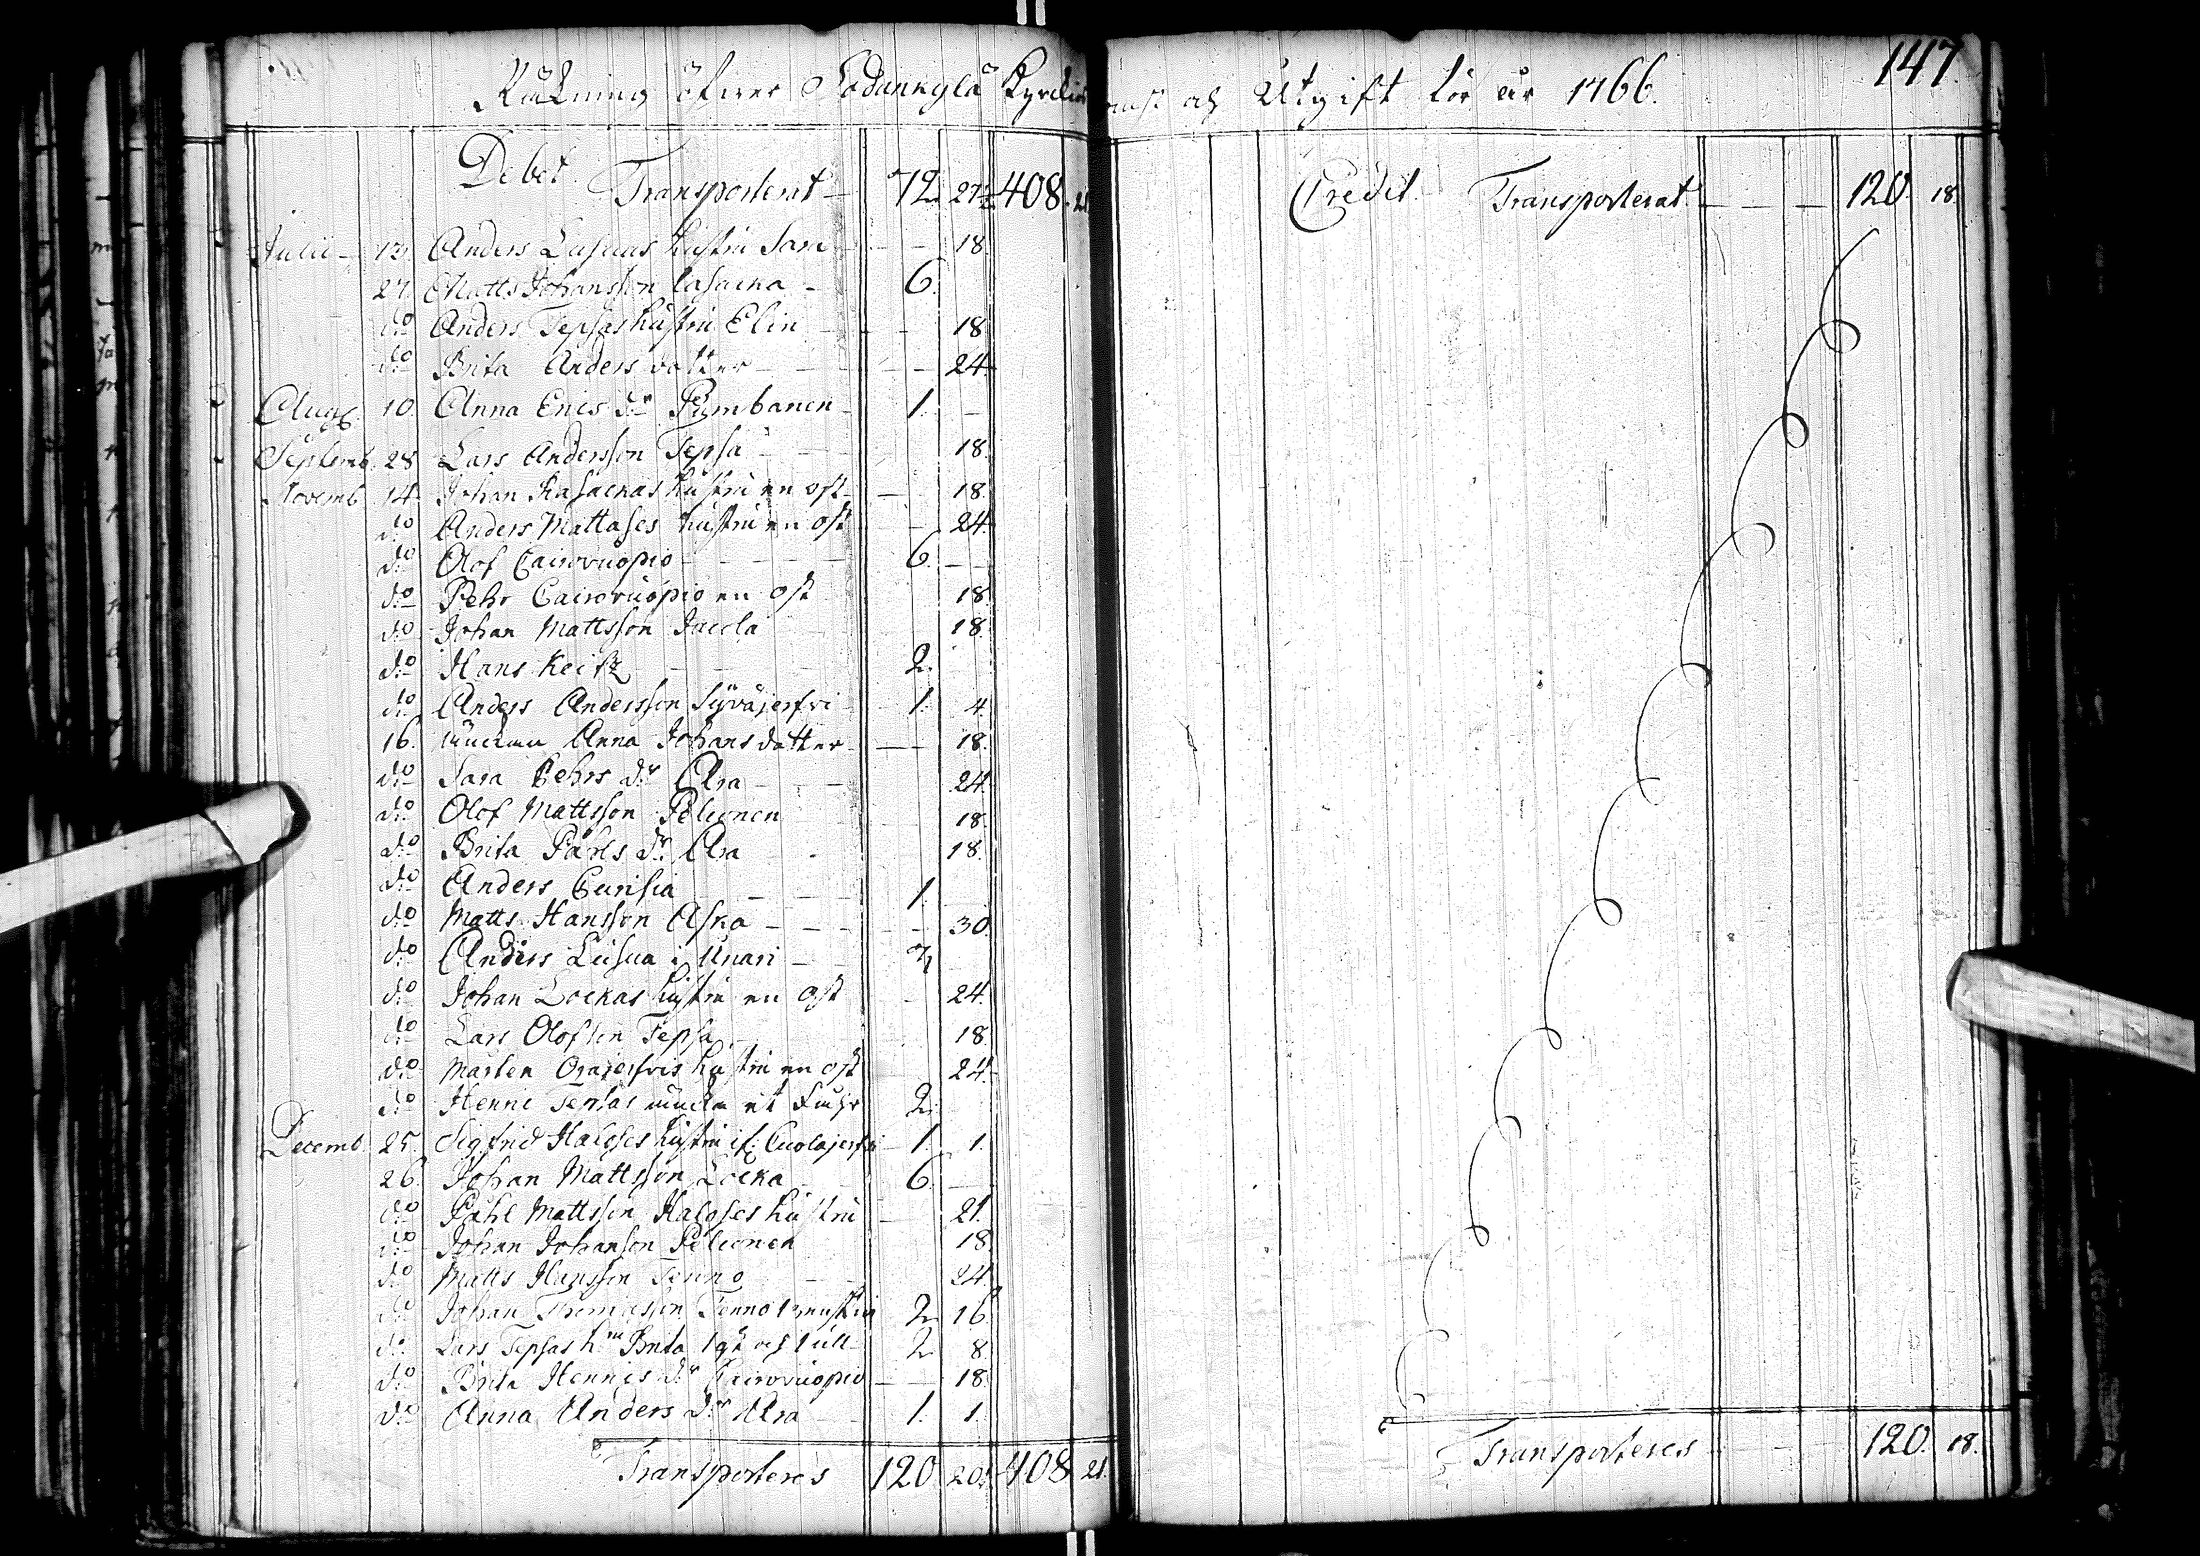 Räkning öfwer Sodankylä Kyrckio
Debet Transporterat 72 27½ 408. 21
Julii 13. Anders Lusuas hustru Sara 18.
27. Matts Johansson Casacka 6.
do Anders Tepsas hustru Elin 18.
do Brita Anders dotter 24.
Aug. 10. Anna Erics dr Pumbanen 1.
Septemb. 28. Lars Andersson Tepsa 18.
Novemb. 14. Johan Kasackas hustru en ost 18.
do Anders Mattases hustru en ost 24.
do Olof Cairovuopio 6.
do Pehr Cairovuopio en ost 18.
do Johan Mattsson 18.
do Hans Keitz 2.
do Anders Andersson Syväjerfvi 1. 4.
16. Änckan Anna Johans dotter 18.
do Sara Pehrs dr Ara 24.
do Olof Mattsson Pelconen 18.
do Brita Påhls dr Ara 18.
do Anders 1.
do Matts Hansson Aska 30.
do Anders Lusua i Unari
do Johan Lockas hustru en ost 24.
do Lars Olofson Tepsa 18.
do Mårten Orajerfvis hustru en ost 24.
do Henric Tepsas äncka et 2.
Decemb. 25. Sigfrid Haloses hustru if: Cuolajerfvi 1. 1.
26. Johan Mattsson Locka 6.
do Påhl Mattsson Haloses hustru 21.
do Johan Johanson Pelconen 18.
do Matts Hansson Tenno 24.
do Johan Thomasson Tenno 2. 16.
do Lars Tepsas h:u Brita 1 ost och 1 ull 2. 8.
do Brita Henrics dr Cairovuopio 18.
do Anna Anders dr Ara 1. 1.
Transporteres 120. 20½ 408. 21.
147.
och Utgift för år 1766.
Credit. Transporterat. 120. 18.
Transporteres 120. 18.